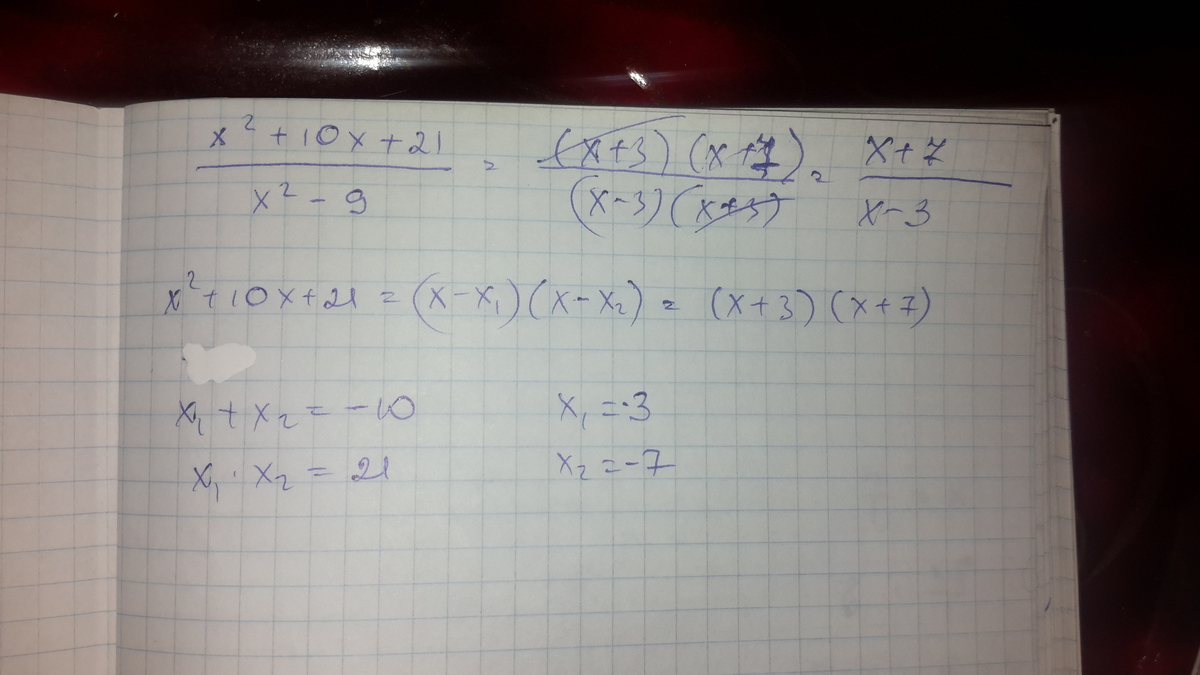 x² + 10x + 21 / x² - 9 = (x+3)(x+7) / (x-3)(x+3) = x+7 / x-3
x² + 10x + 21 = (x - x₁)(x - x₂) = (x+3)(x+7)
x₁ + x₂ = -10 x₁ = -3
x₁ · x₂ = 21 x₂ = -7